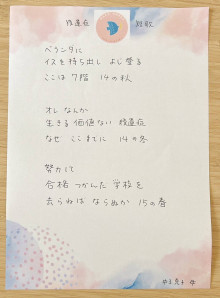 後遺症 短歌
ベランダに
イスを持ち出し よじ登る
ここは7階 14の秋
オレ なんか
生きる価値ない 後遺症
なぜ ここまでに 14の冬
努力して
合格 つかんだ 学校を
去らねば ならぬか 15の春